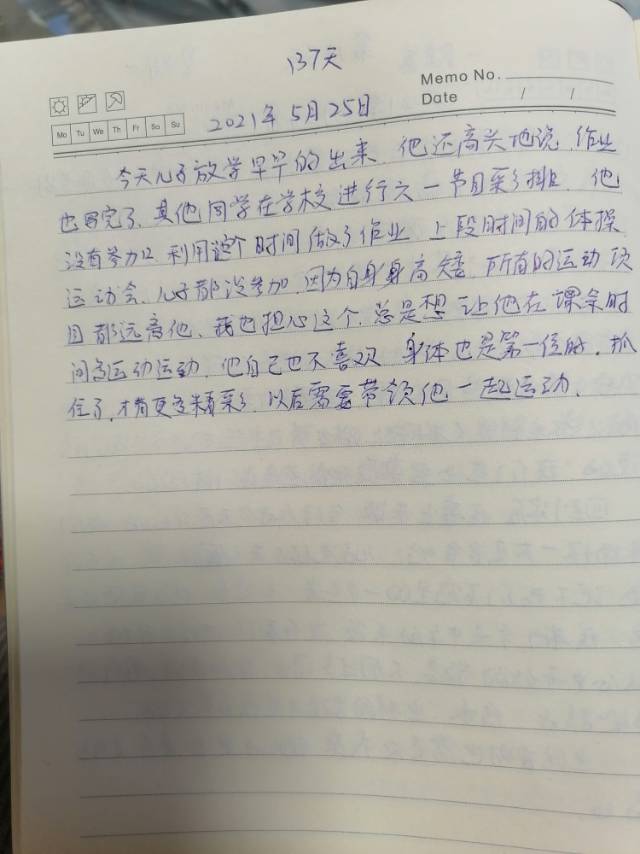 137天
Memo No.
Date / /
Mo Tu We Th Fr Sa Su
2021年5月25日
今天儿子放学早早的出来 他还高兴地说 作业
也写完了,其他同学在学校进行六一节目彩排 他
没有参加 利用这个时间做了作业 上段时间的体操
运动会,儿子都没参加,因为自身身高矮 所有的运动项
目都远离他、我也担心这个,总是想让他在课余时
间多运动运动,他自己也不喜欢 身体也是第一位的,抓
住了,才有更多精彩,以后需要带领他一起运动.